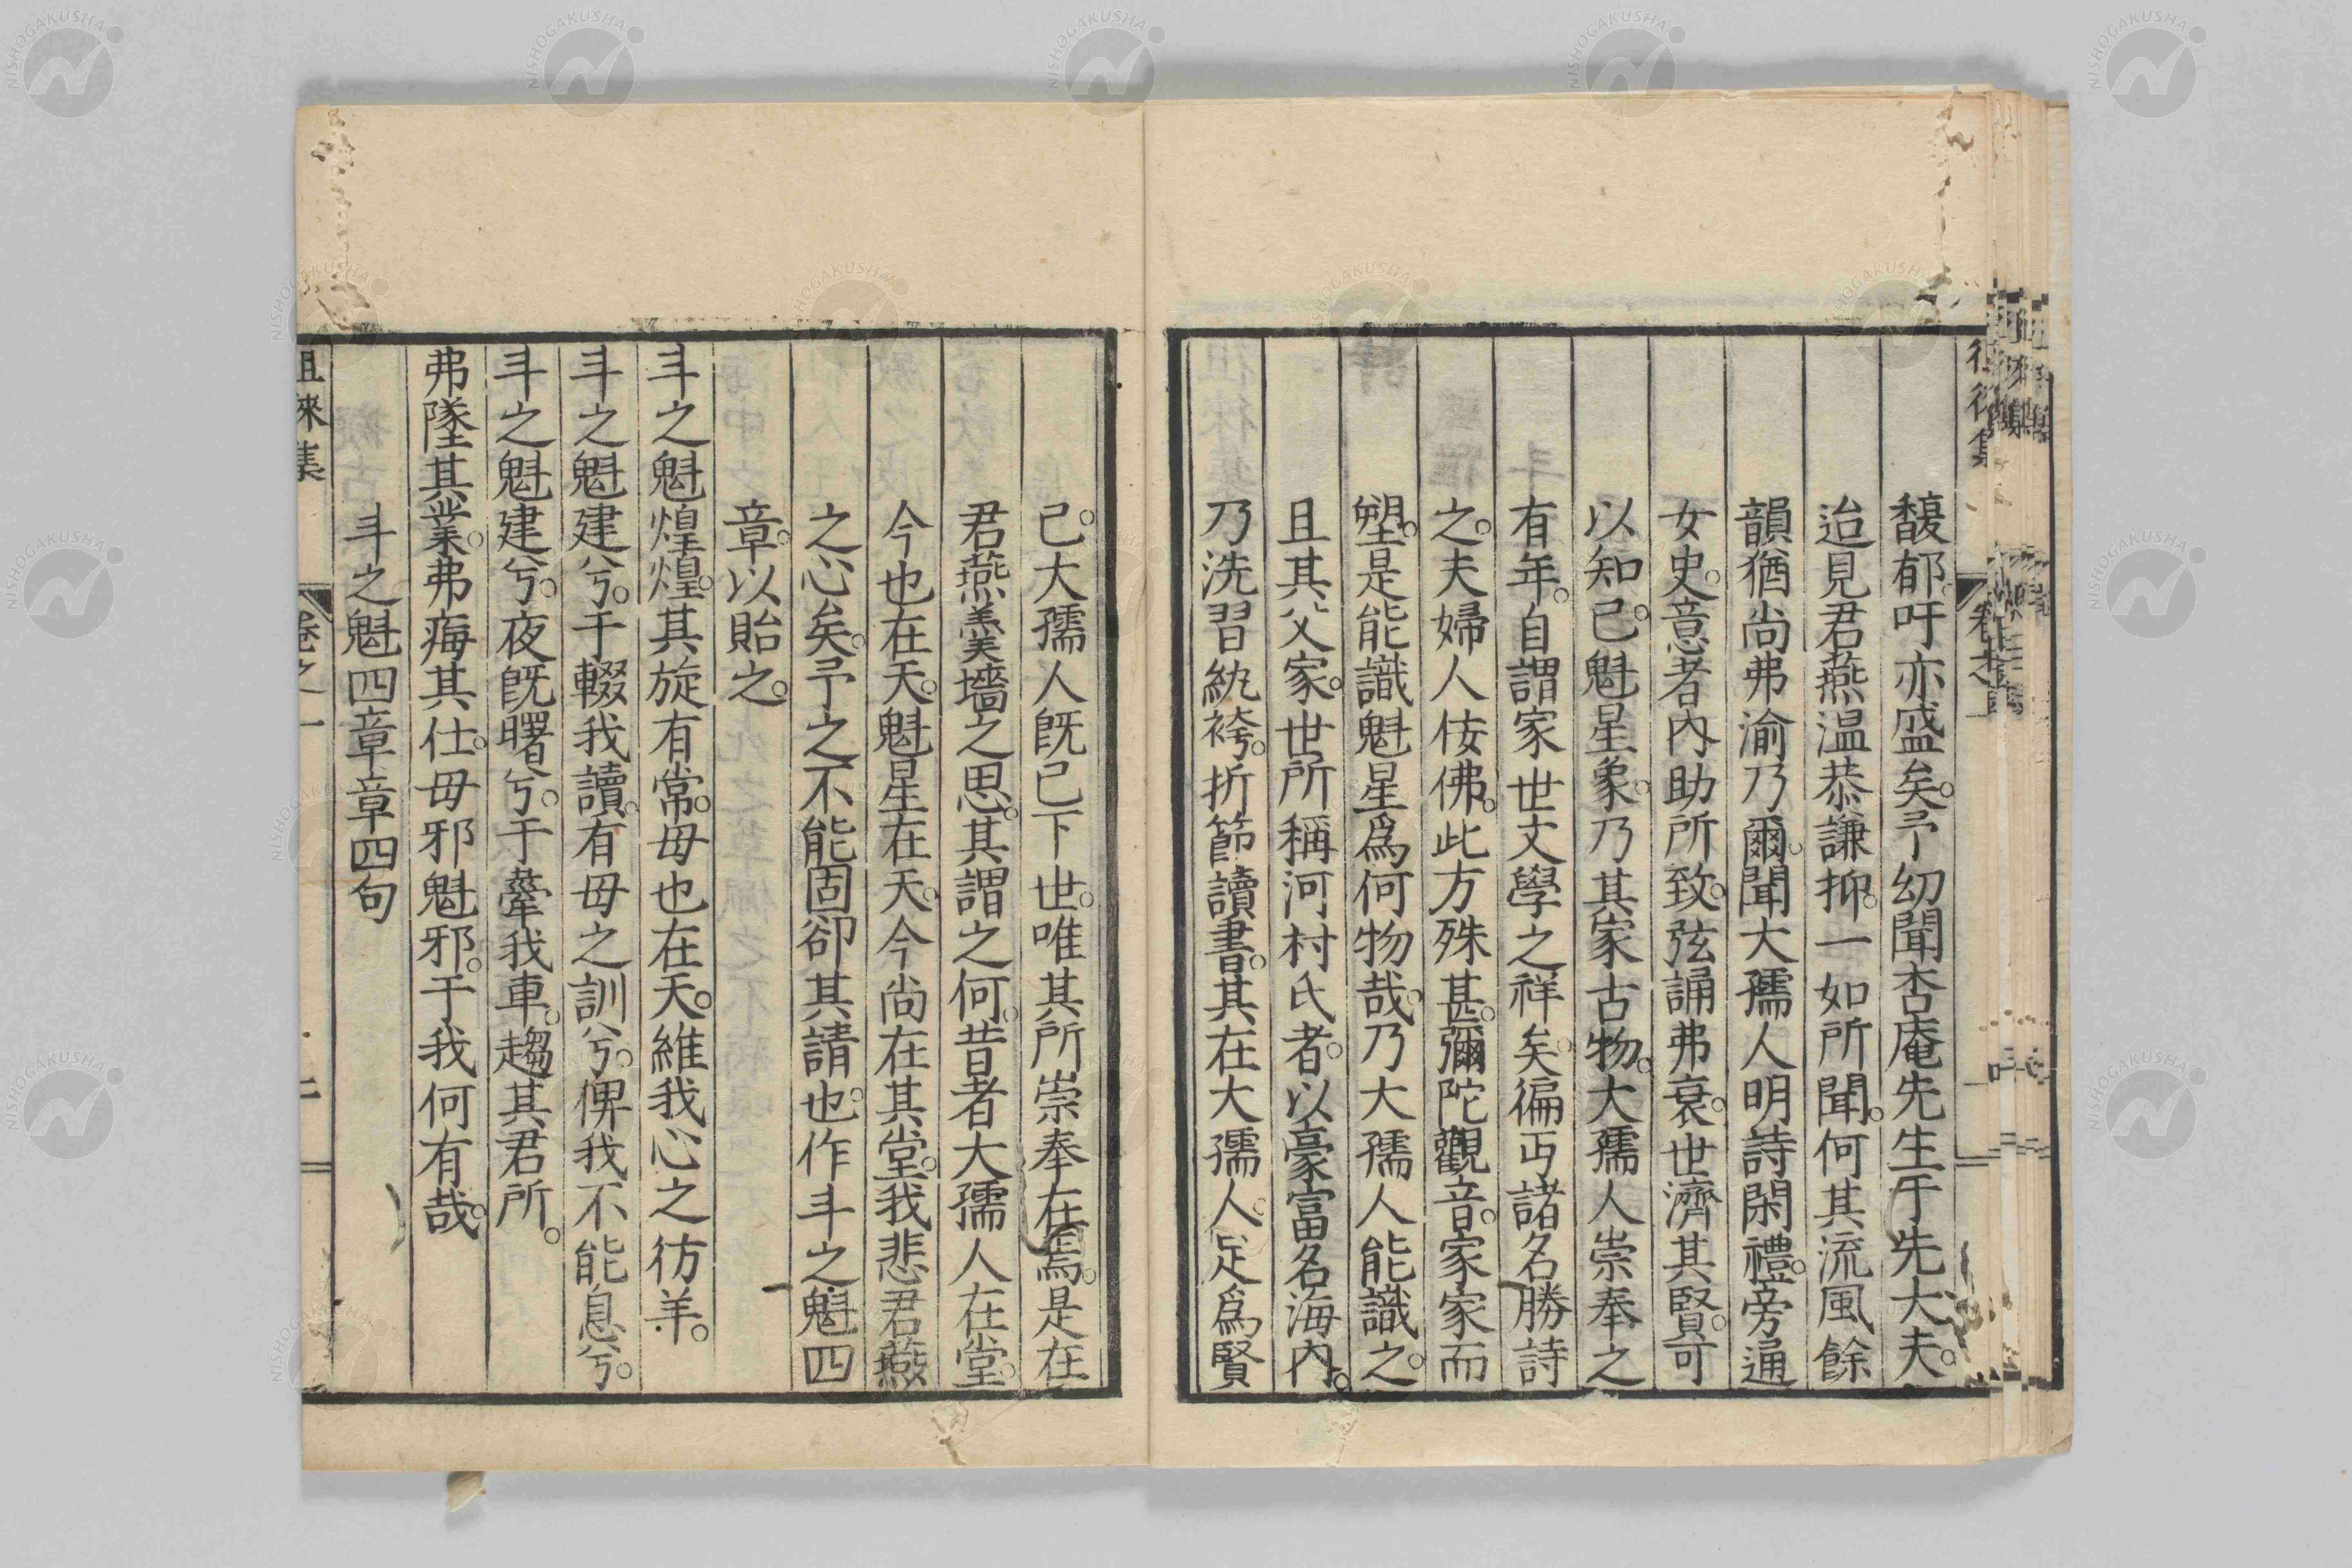 馥郁。吁亦盛矣。予幼聞杏庵先生于先大夫。
迨見君燕温恭謙抑。一如所聞。何其流風餘
韻猶尚弗渝乃爾。聞大孺人明詩閑禮。旁通
女史。意者内助所致。弦誦弗衰。世濟其賢。可
以知已。魁星象。乃其家古物。大孺人崇奉之
有年。自謂家世文學之祥矣。徧丏諸名勝詩
之。夫婦人佞佛。此方殊甚。彌陀觀音。家家而
塑。是能識魁星爲何物哉。乃大孺人能識之。
且其父家。世所稱河村氏者。以豪富名海内。
乃洗習紈袴。折節讀書。其在大孺人。足爲賢
已。大孺人旣已下世。唯其所崇奉在焉。是在
君燕羹墻之思。其謂之何。昔者大孺人在堂。
今也在天。魁星在天。今尚在其堂。我悲君燕
之心矣。予之不能固卻其請也。作斗之魁四
章。以貽之。
斗之魁煌煌。其旋有常。毋也在天。維我心之彷羊。
斗之魁建兮。于輟我讀。有毋之訓兮。俾我不能息兮。
斗之魁建兮。夜旣曙兮。于牽我車。趨其君所。
弗墜其業。弗痗其仕。毋邪魁邪。于我何有哉。
斗之魁四章章四句
徂徠集
卷之一
NISHOGAKUSHA